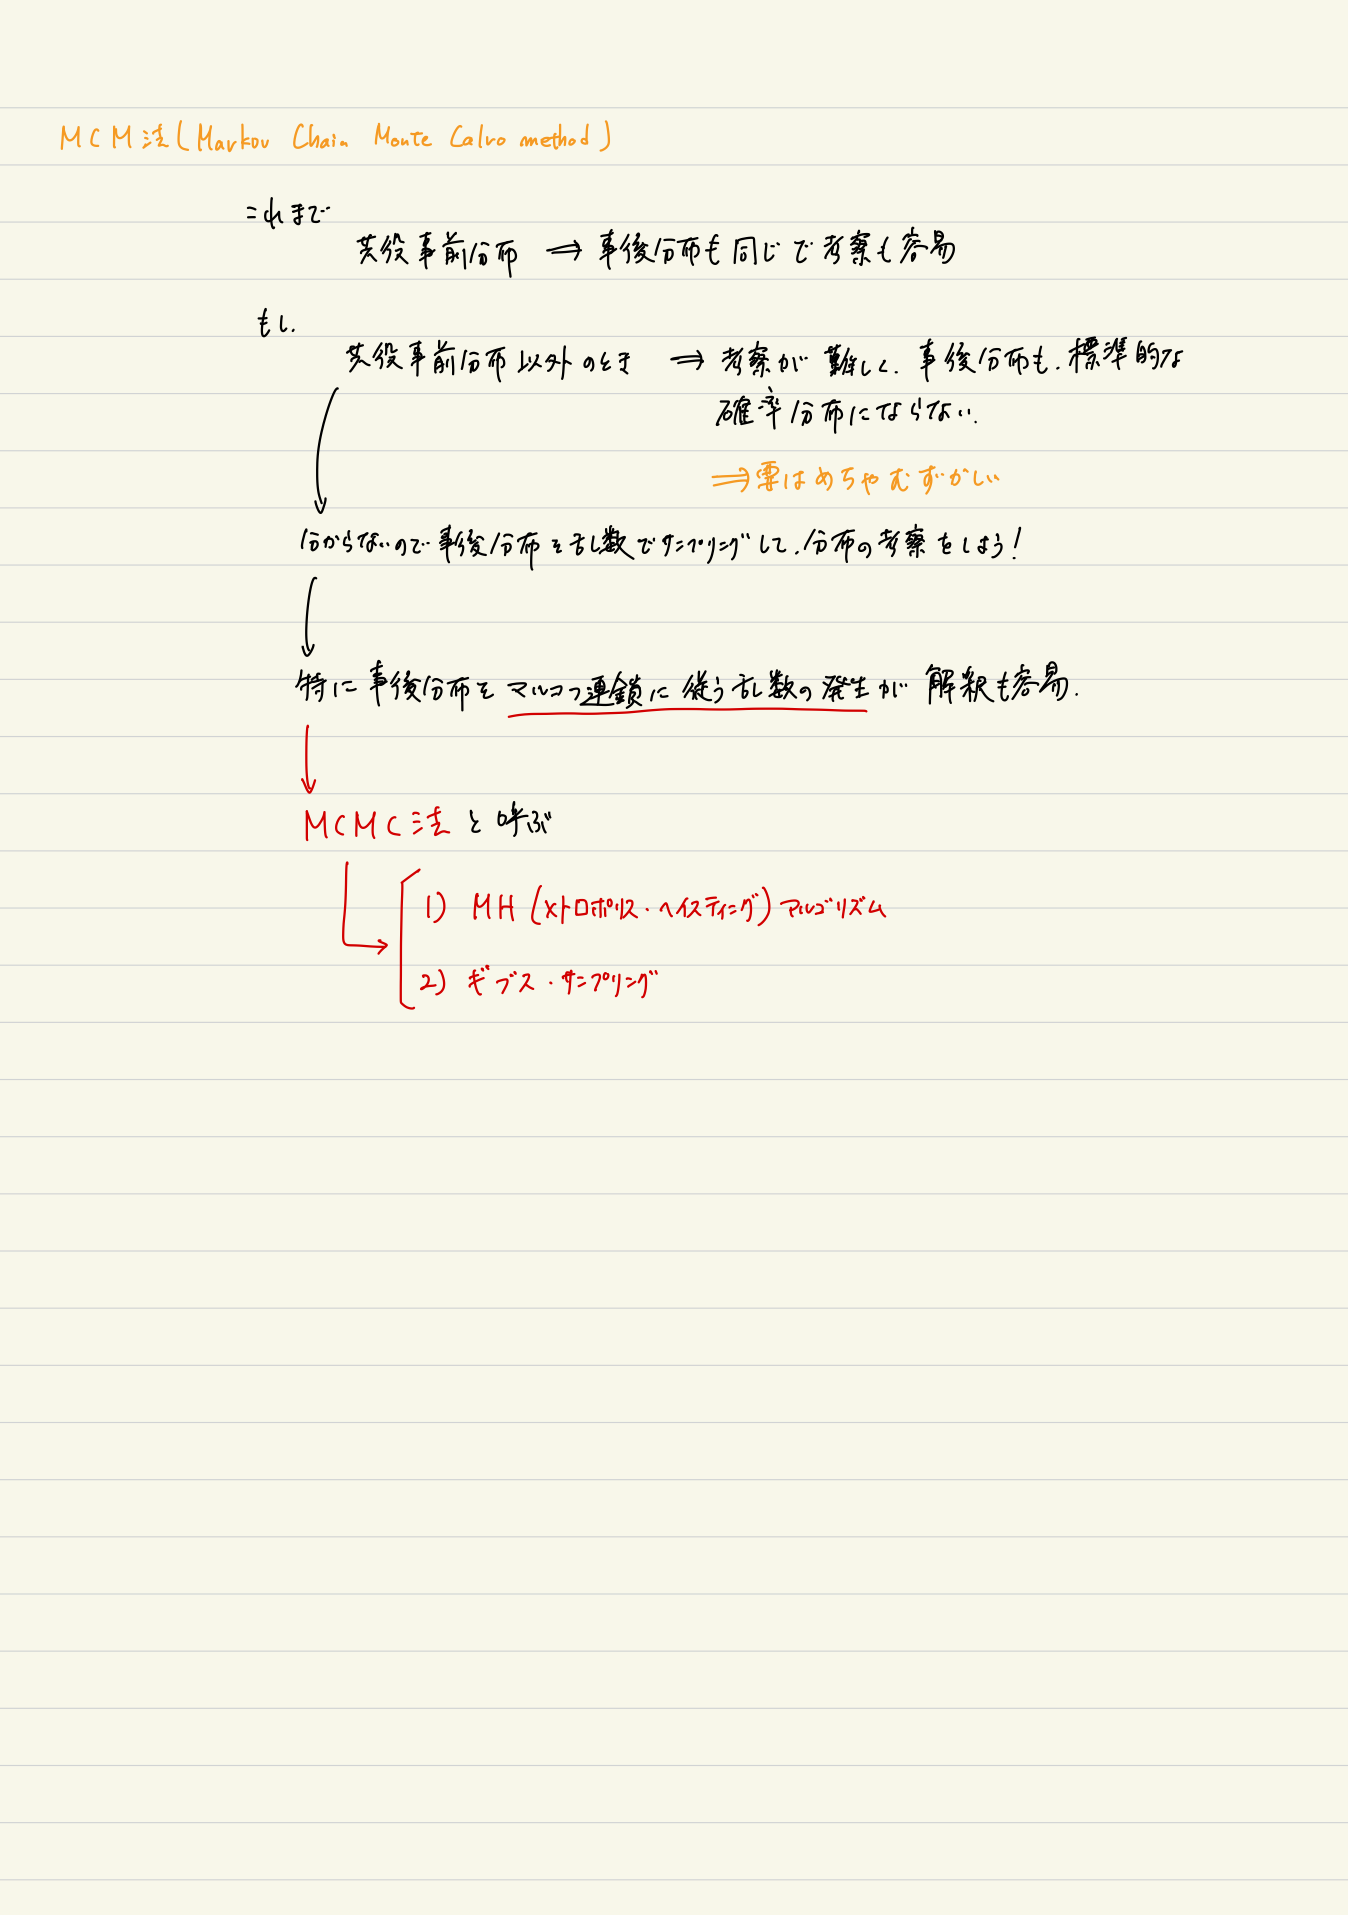 MCM法(Markov Chain Monte Calro method)
これまで
共役事前分布 ⇒ 事後分布も同じで考察も容易
もし.
共役事前分布以外のとき ⇒ 考察が難しく、事後分布も、標準的な
確率分布にならない.
⇒要はめちゃむずかしい
分からないので事後分布を乱数でサンプリングして、分布の考察をしよう!
特に事後分布をマルコフ連鎖に従う乱数の発生が解釈も容易.
MCMC法と呼ぶ
1) MH(メトロポリス・ヘイスティング)アルゴリズム
2) ギブス・サンプリング